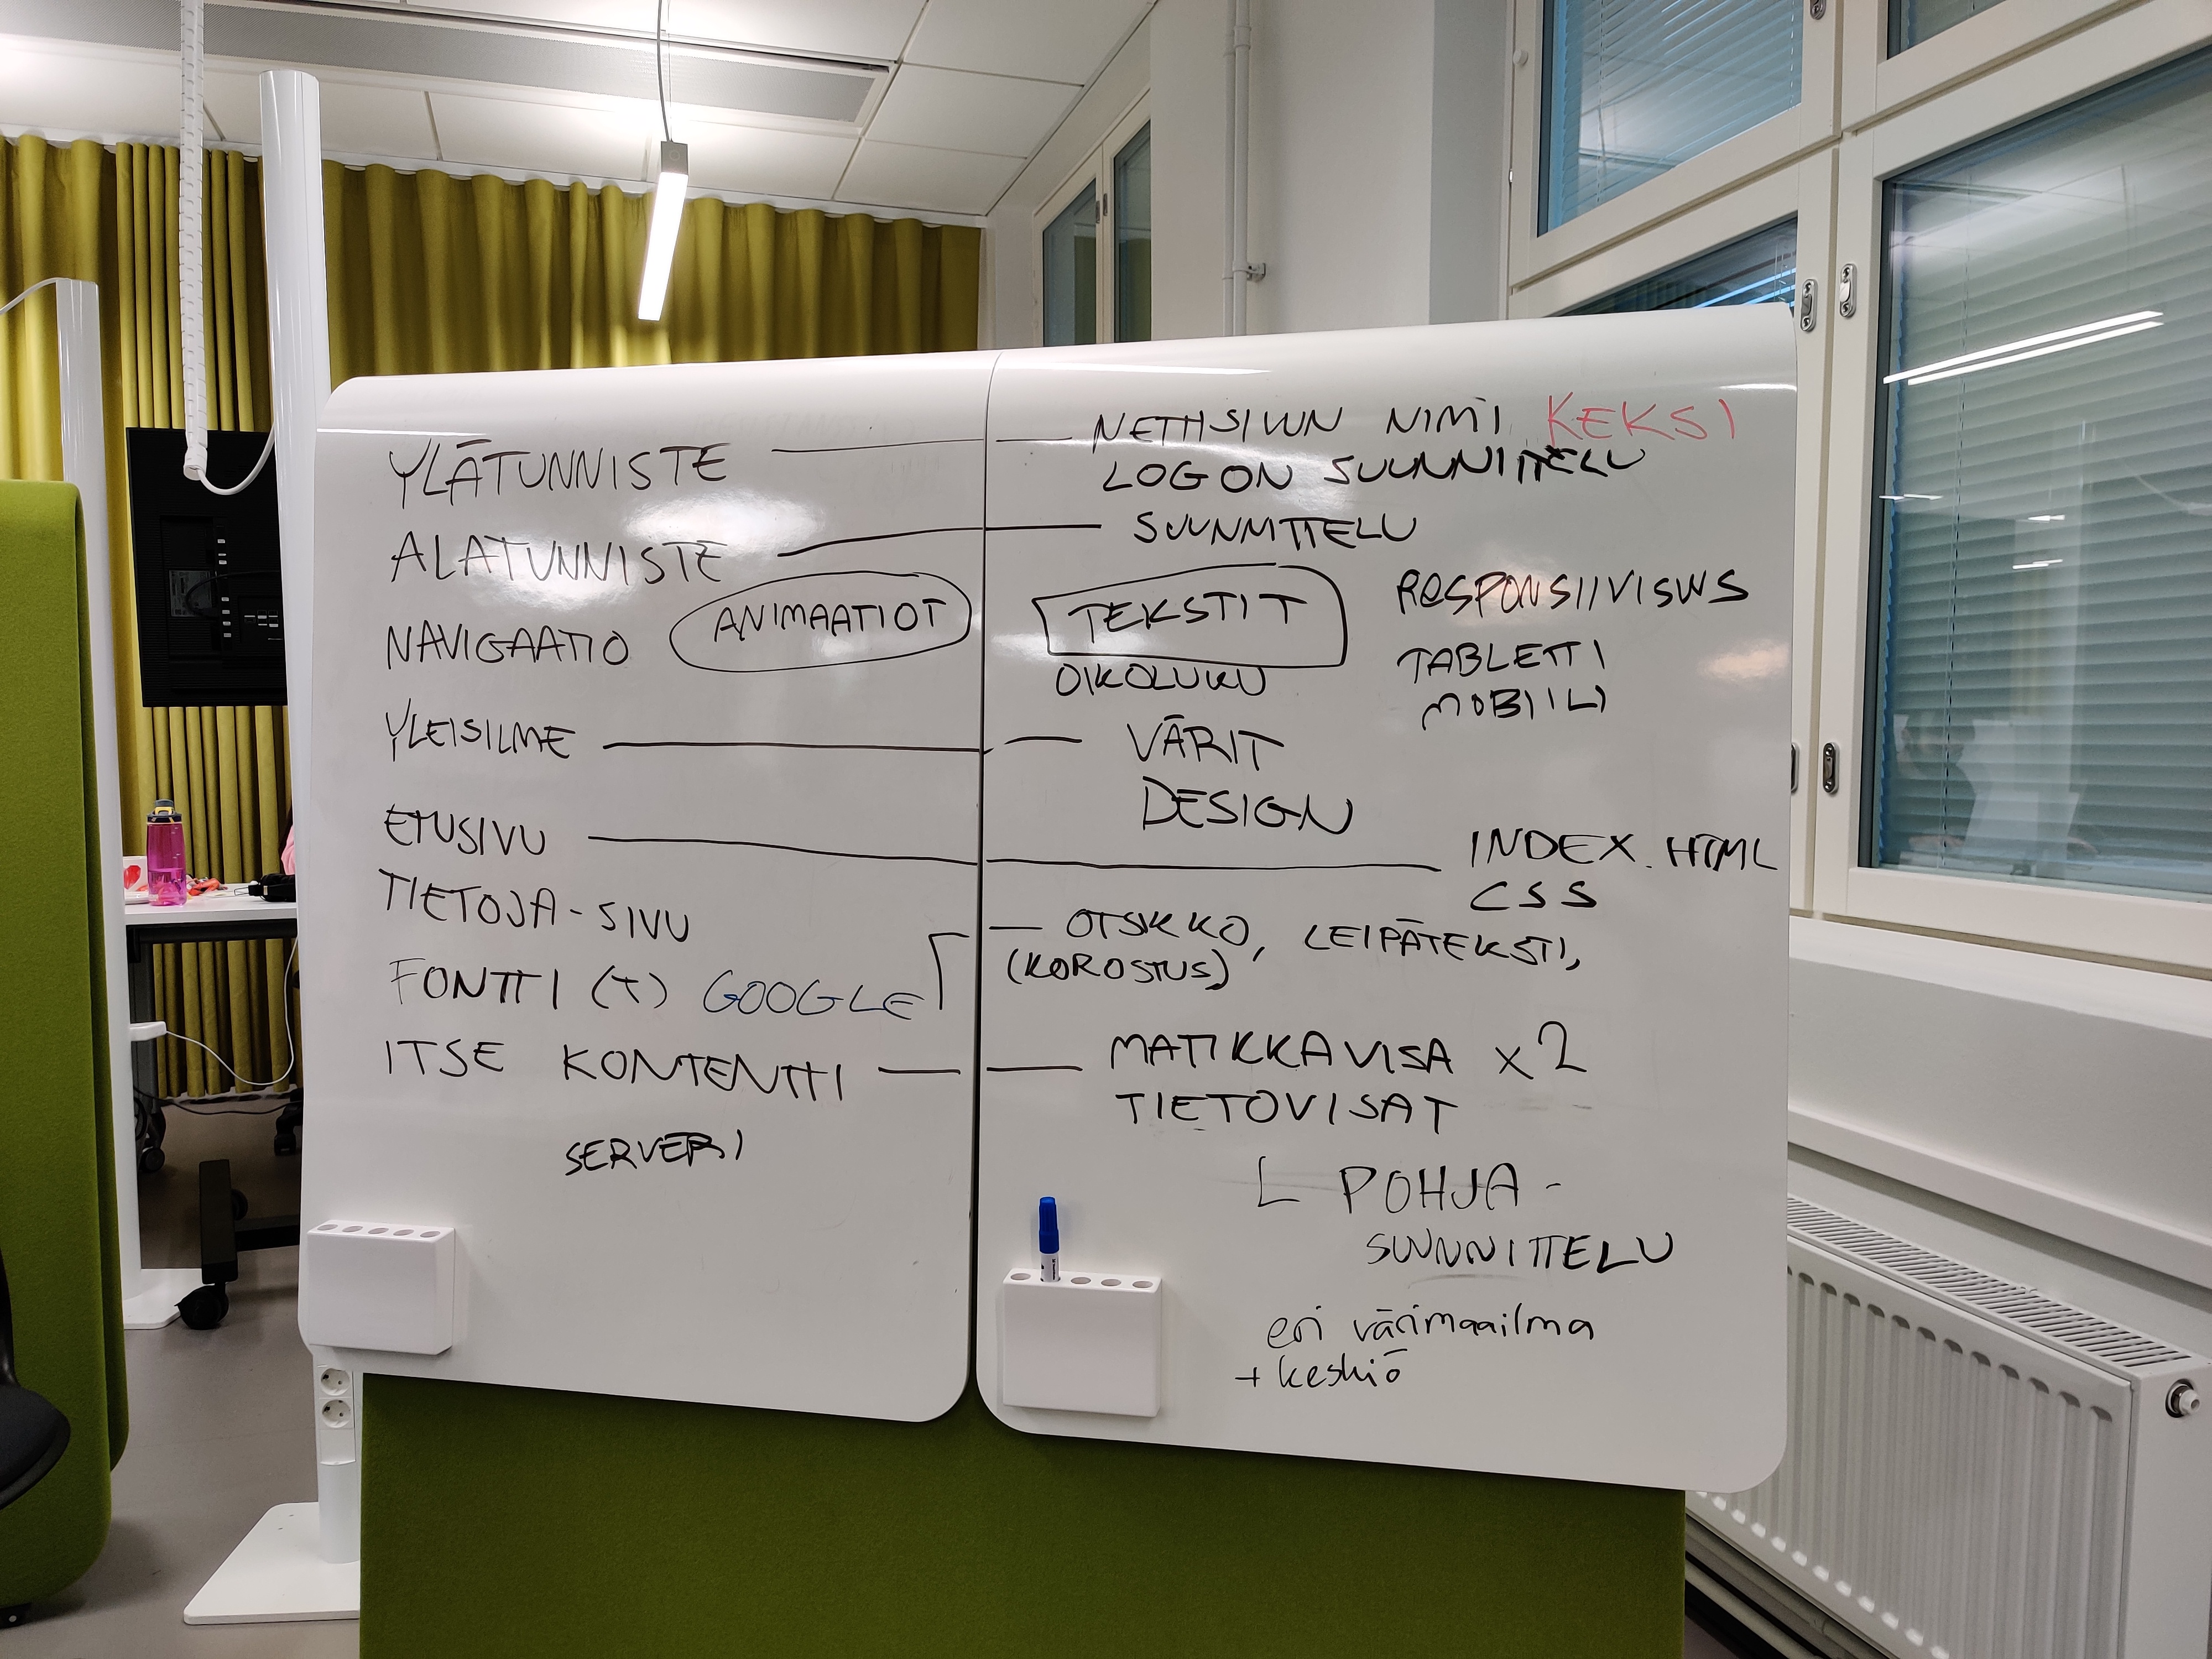 YLÄTUNNISTE
NETTISIVUN NIMI KEKSI
LOGON SUUNNITTELU
ALATUNNISTE
SUUNNITTELU
NAVIGAATIO
ANIMAATIOT
TEKSTIT
OIKOLUKU
RESPONSIIVISUUS
TABLETTI
MOBIILI
YLEISILME
VÄRIT
DESIGN
ETUSIVU
INDEX.HTML
CSS
TIETOJA-SIVU
FONTTI (T) GOOGLE
OTSIKKO, LEIPÄTEKSTI,
(KOROSTUS)
ITSE KONTENTTI
MATIKKAVISA x2
TIETOVISAT
SERVERI
POHJA-
SUUNNITTELU
eri värimaailma
+ keskiö